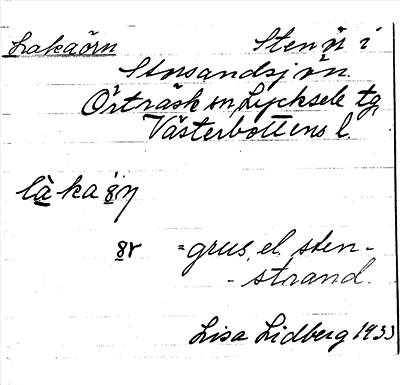 Lakaörn Stenö i
Storsandsjön.
Örträsk sn, Lycksele tg,
Västerbottens l.
làka
= grus, el. sten-
- strand.
Lisa Lidberg 1933